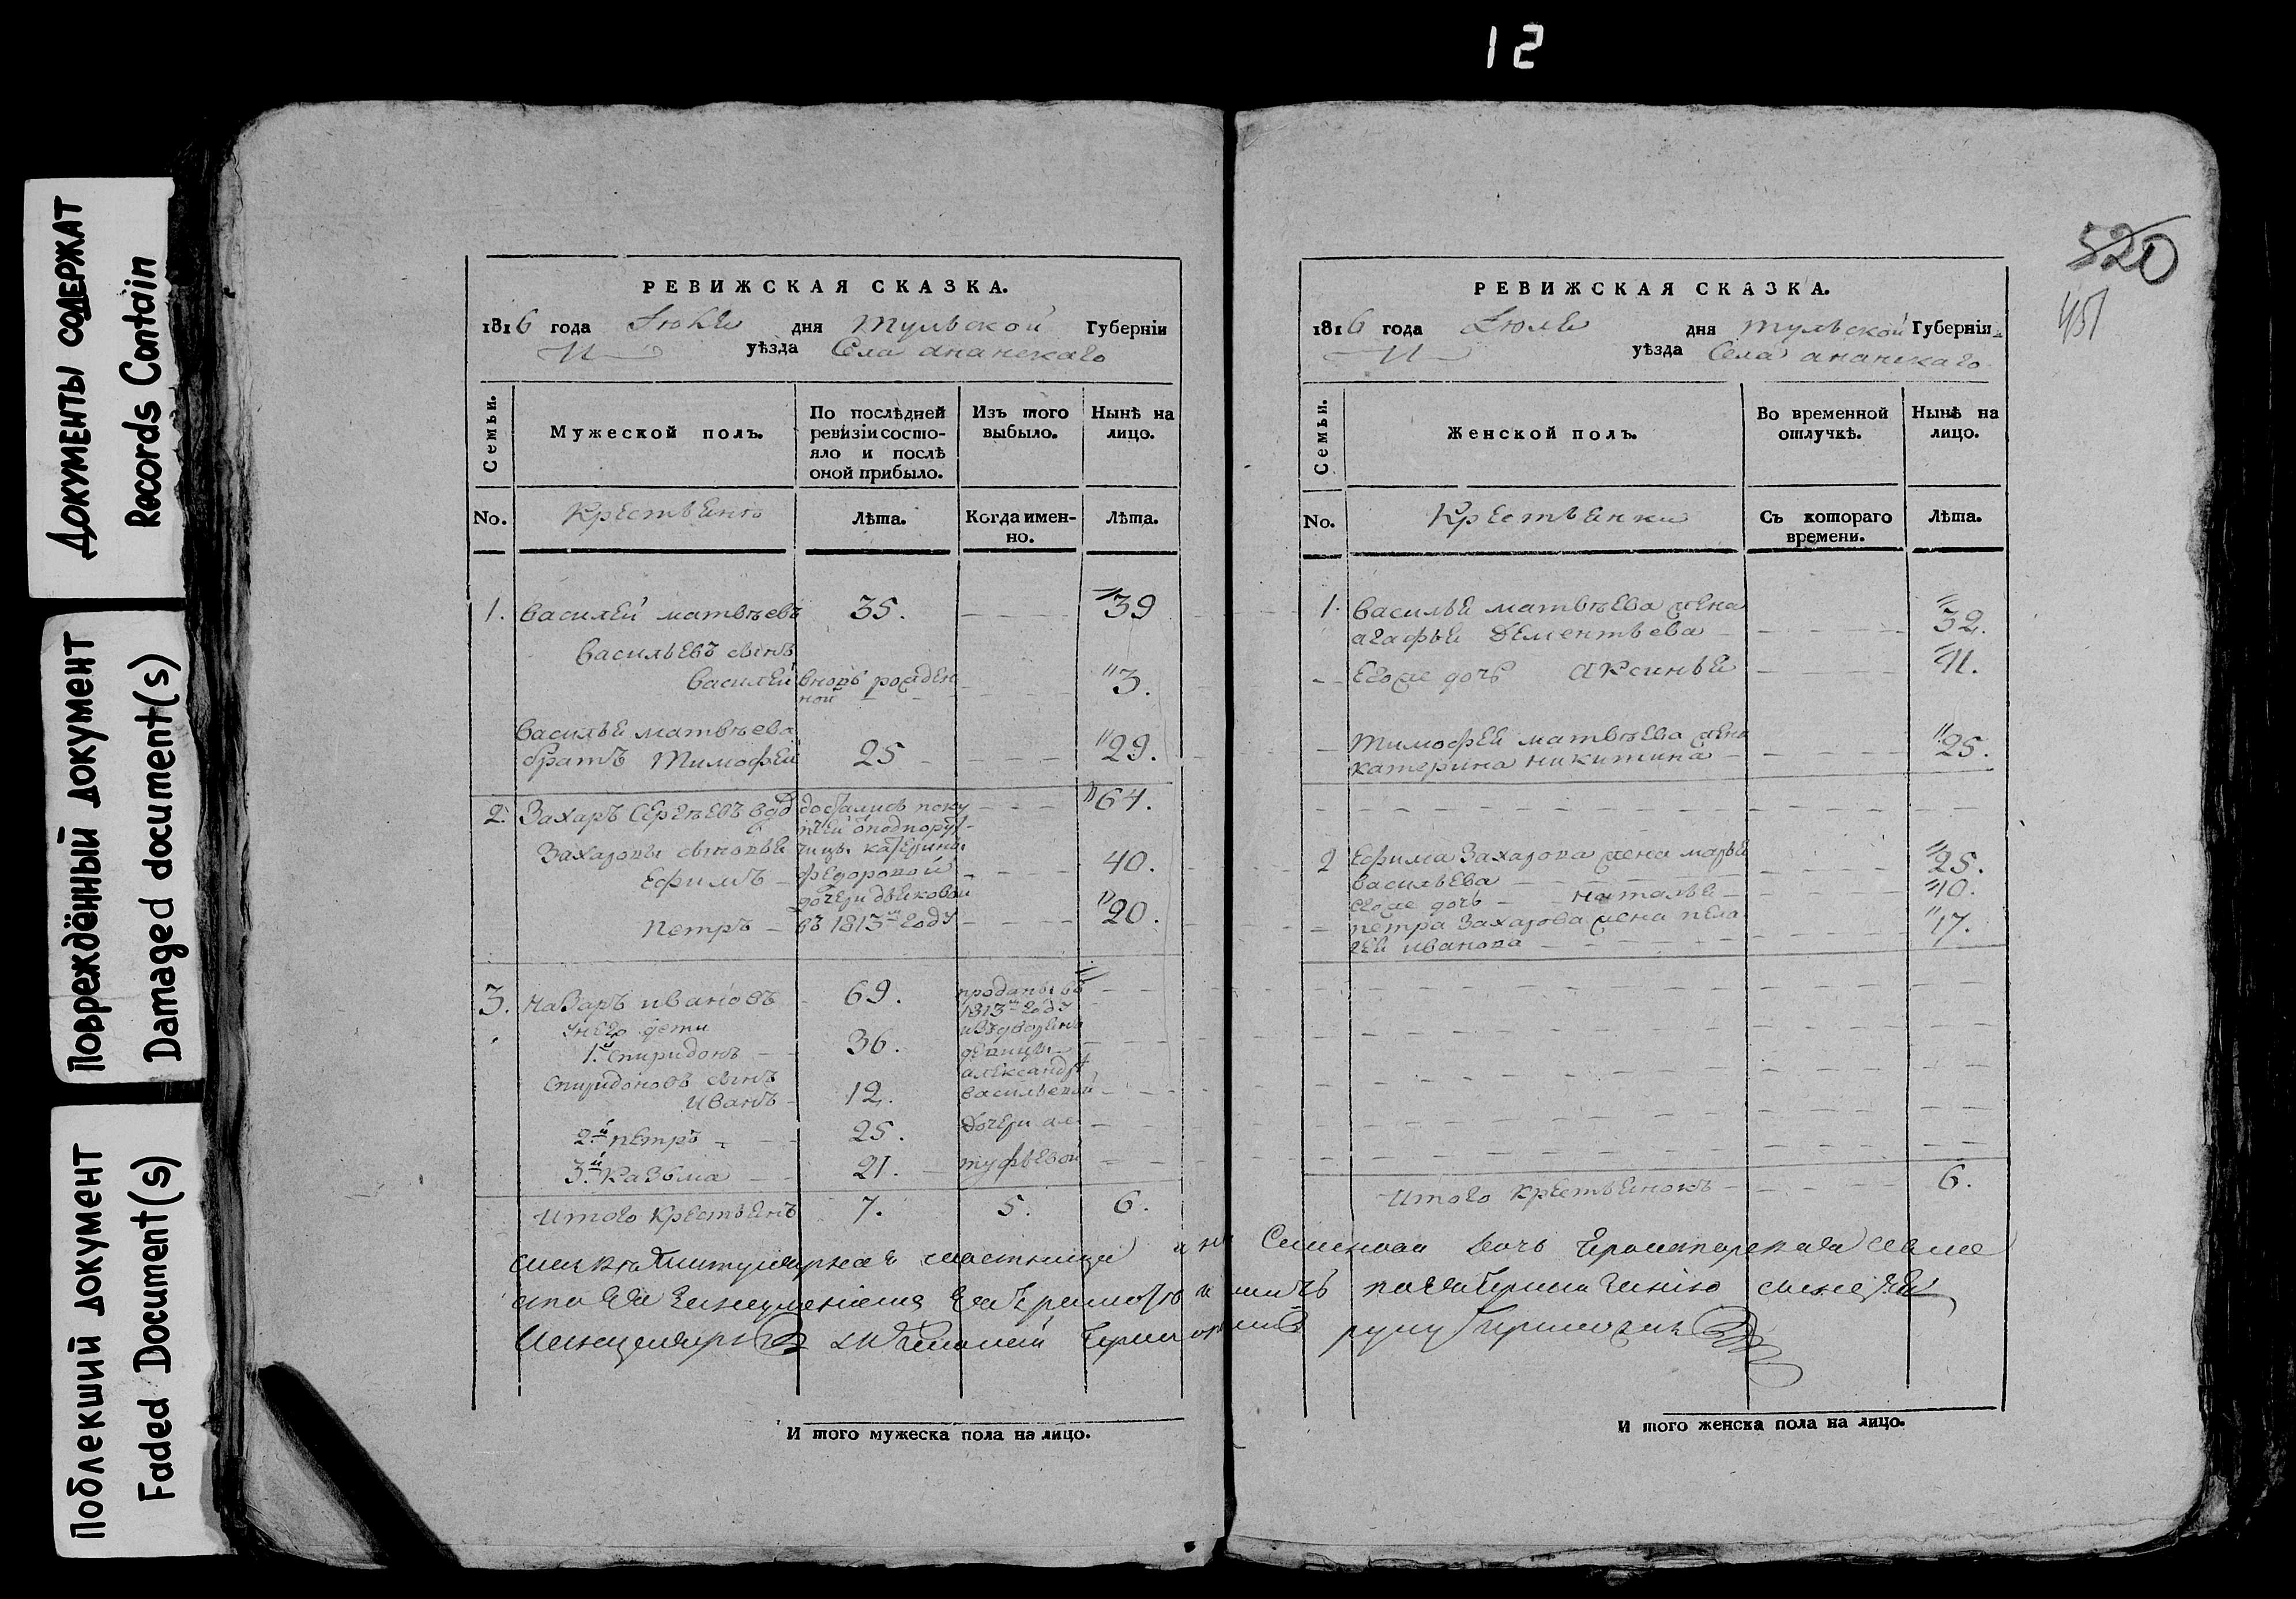 12
Документы содержат
Records Contain
Повреждённый документ
Damaged document(s)
Поблекший документ
Faded Document(s)
РЕВИЖСКАЯ СКАЗКА.
1816 года Июля дня Тульской Губерніи
уѣзда Села ананскаго
Семьи.
Мужеской полъ.
По послѣдней
ревизіи состо-
яло и послѣ
оной прибыло.
Изъ того
выбыло.
Нынѣ на
лицо.
No.
Крестьянъ
Лѣта.
Когда имен-
но.
Лѣта.
1. василей матвѣевъ 35. 39
васильевъ сынъ
василей вновь рожден
ной 3.
василья матвѣева
братъ Тимофей 25 29.
2. Захаръ Сергѣевъ вдо достались поку 64.
въ пкей отподпорут-
Захаровы сыновья чицы катерины
Ефимъ федоровой 40.
дочери дьяковой
Петръ въ 1813м году 20.
3. назаръ ивановъ 69. проданы въ
1813м году
у него дети
1.й спиридонъ 36. девицы
александре
спиридоновъ сынъ
иванъ 12. васильевой
2й петръ 25. дочери ал
3.й казьма 21. туфьевой
итого крестьянъ 7. 5. 6.
И того мужеска пола на лицо.
520
451
РЕВИЖСКАЯ СКАЗКА.
1816 года Июля дня тульской Губерніи
уѣзда Села ананскаго
Семьи.
Женской полъ.
Во временной
отлучкѣ.
Нынѣ на
лицо.
No.
Крестьянки
Съ котораго
времени.
Лѣта.
1. василья матвѣева жена
агафья дементьева 32.
его же дочь аксинья 11.
тимофея матвѣева жена
катерина никитина 25.
2 Ефима Захарова жена марья
васильева 25.
его же дочь наталья 10.
петра Захарова жена пела
гея иванова 17.
итого крестьянокъ 6.
И того женска пола на лицо.